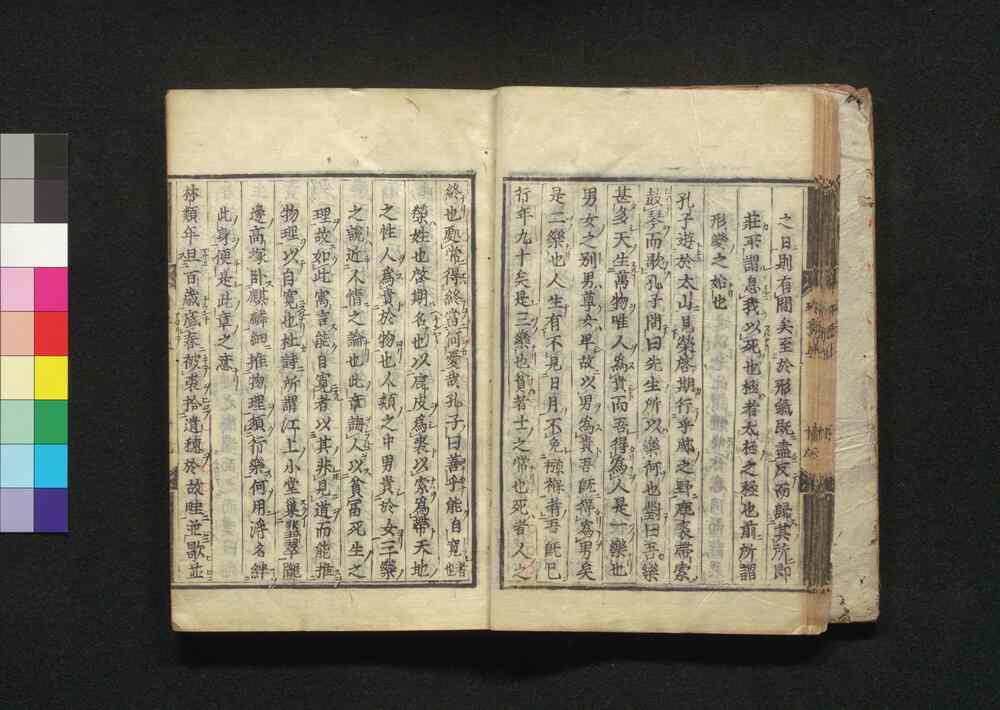 之日則有間矣至於形氣既盡反而歸其所即
莊子謂息我以死也極者太極之極也前所謂
形變之始也
孔子遊於太山見榮啓期行乎郕之野鹿裘帶索
鼓琴而歌孔子問曰先生所以樂何也對曰吾樂
甚多天生萬物唯人為貴而吾得為人是一樂也
男女之別男尊女卑故以男為貴吾既得為男矣
是二樂也人生有不見日月不免襁褓者吾既已
行年九十矣是三樂也貧者士之常也死者人之
終也處常得終當何憂哉孔子曰善乎能自寬者也
榮姓也啓期名也以鹿皮為裘以索為帶天地
之性人為貴於物也人類之中男貴於女三樂
之說近人情之論也此章誨人以貧富死生之
理故如此寓言能自寬者以其非見道而能推
物理以自寬也杜詩所謂江上小堂巢翡翠
邊高冢臥麒麟細推物理須行樂何用浮名絆
此身便是此章之意
林類年且百歲底春被裘拾遺穗於故畦並歌並